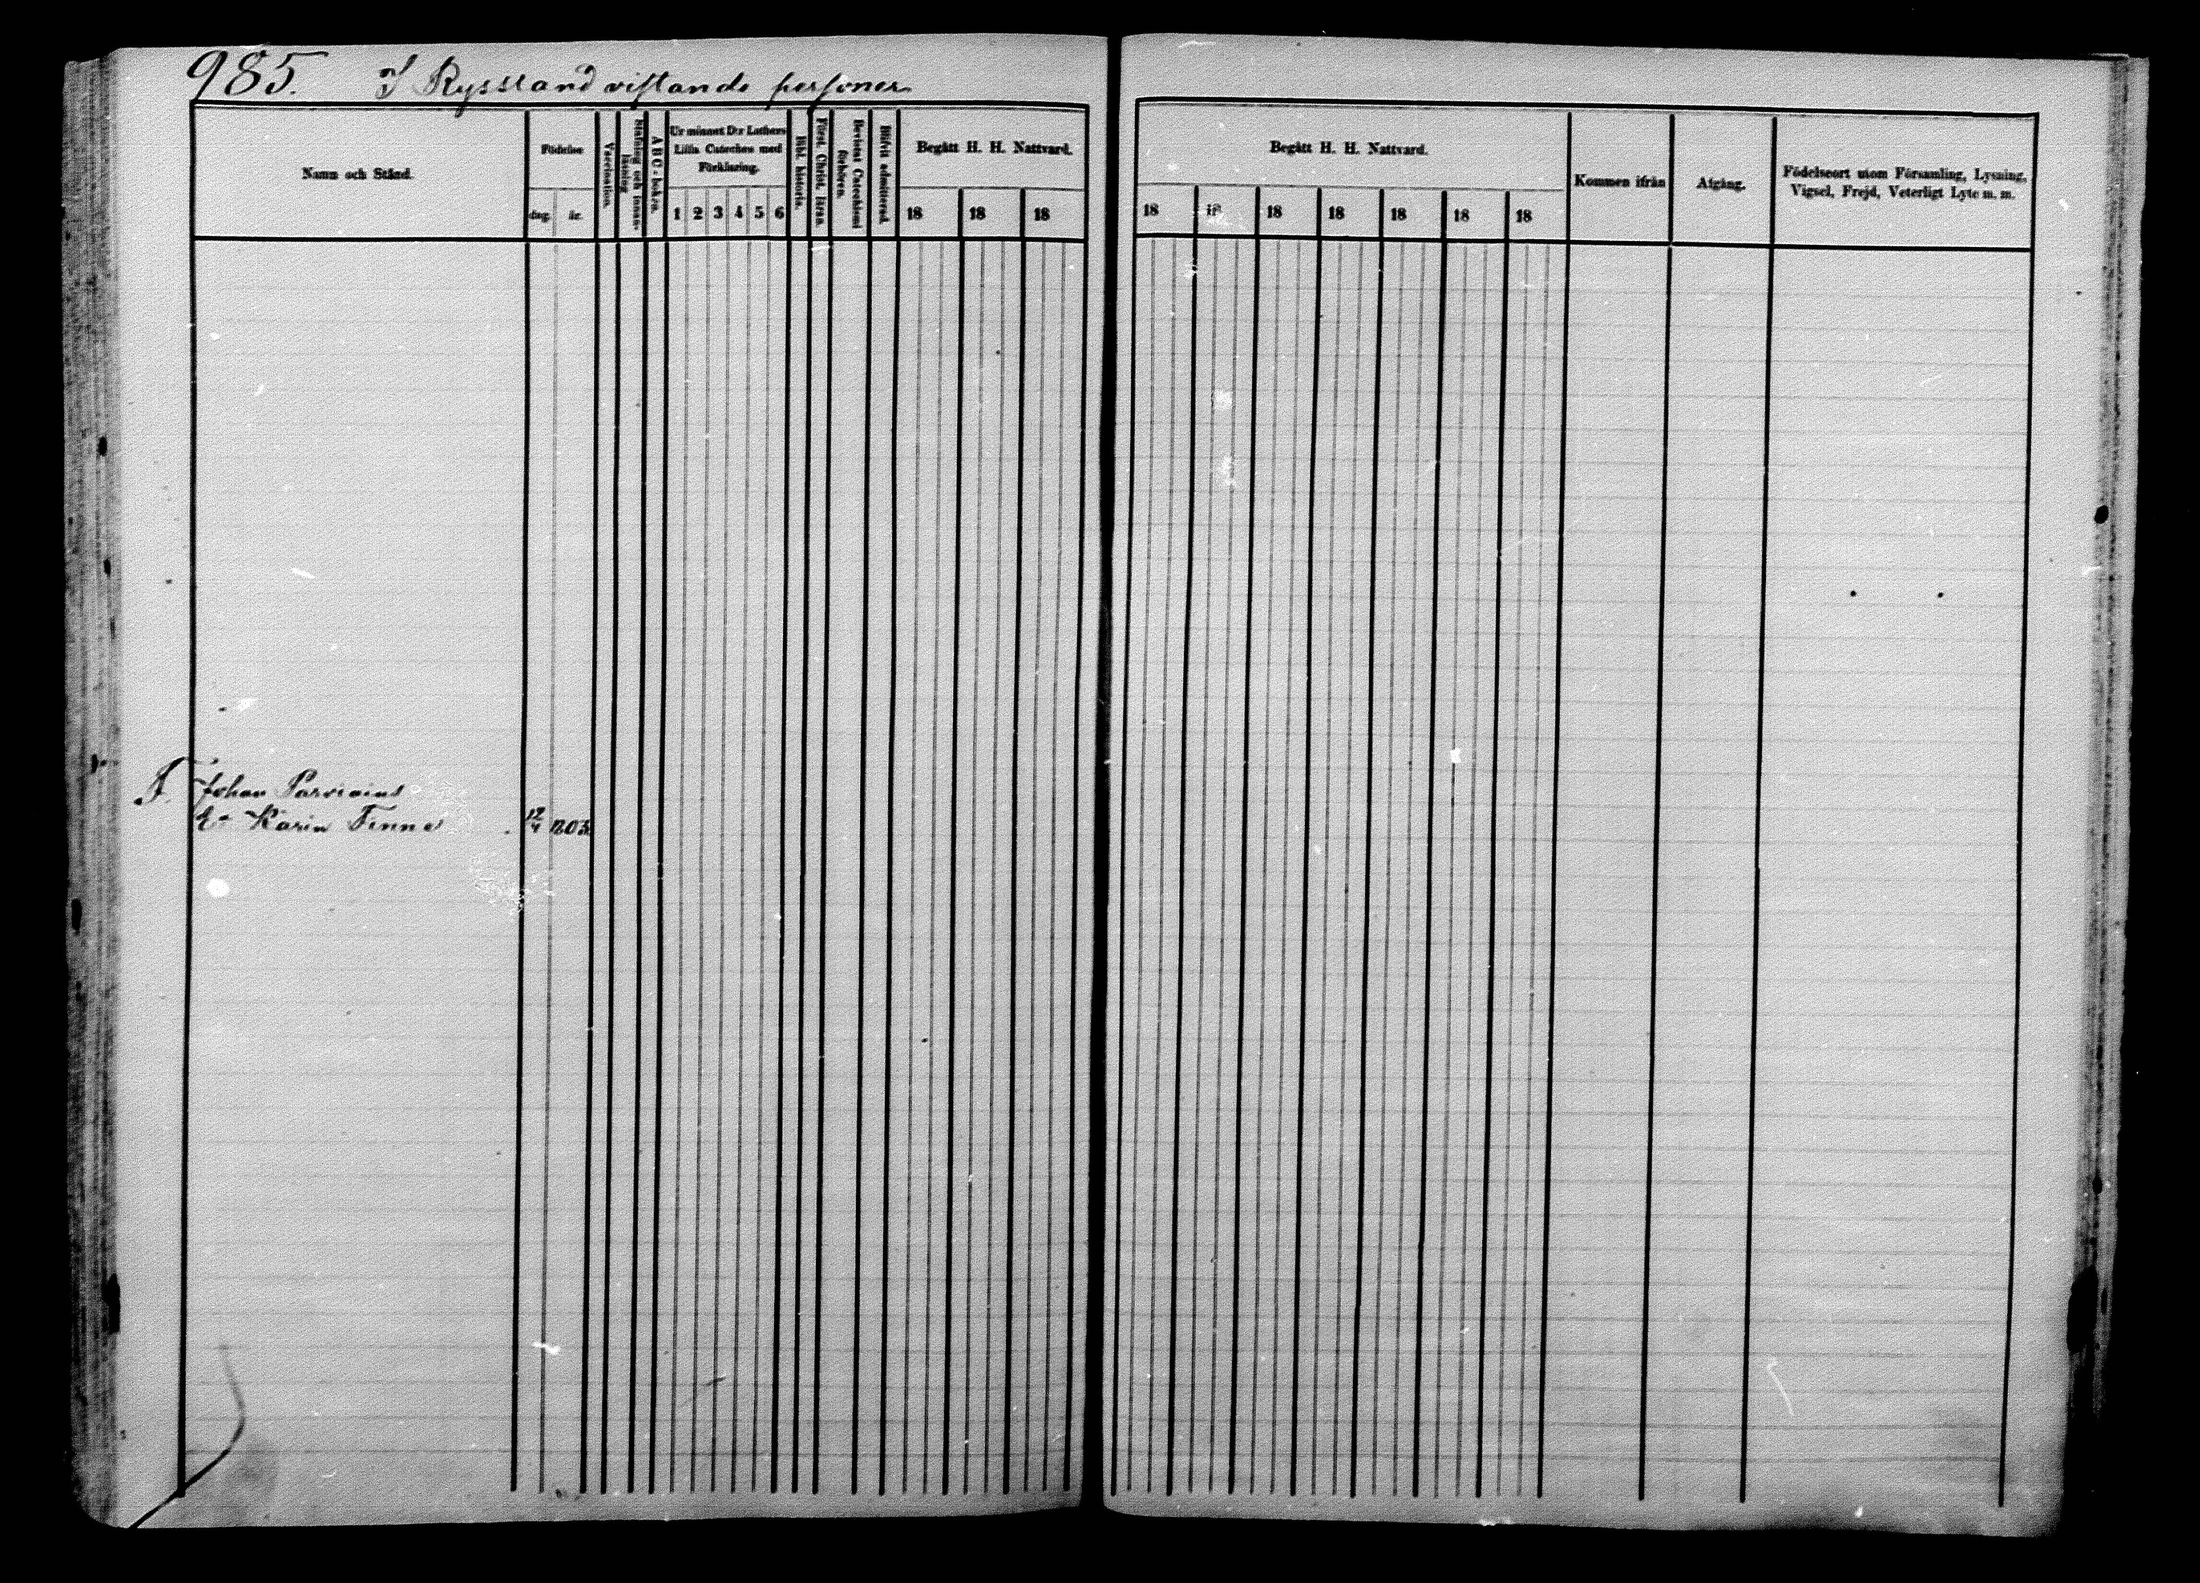 985. I Ryssland vistande personer
Namn och Stånd.
Födelse
dag. år.
Vaccination.
Stafning och innan-
läsning
A B C-boken.
Ur minnet D:r Luthers
Lilla Cateches med
Förklaring.
1 2 3 4 5 6
Bibl. historia.
Först. Christ. läran.
Bevistat Catechismi
förhören.
Blifvit admitterad.
Begått H. H. Nattvard.
18 18 18
Begått H. H. Nattvard.
18 18 18 18 18 18 18
Kommen ifrån
Afgång.
Födelseort utom Församling, Lysning,
Vigsel, Frejd, Veterligt Lyte m. m.
Johan
Karin 12/4